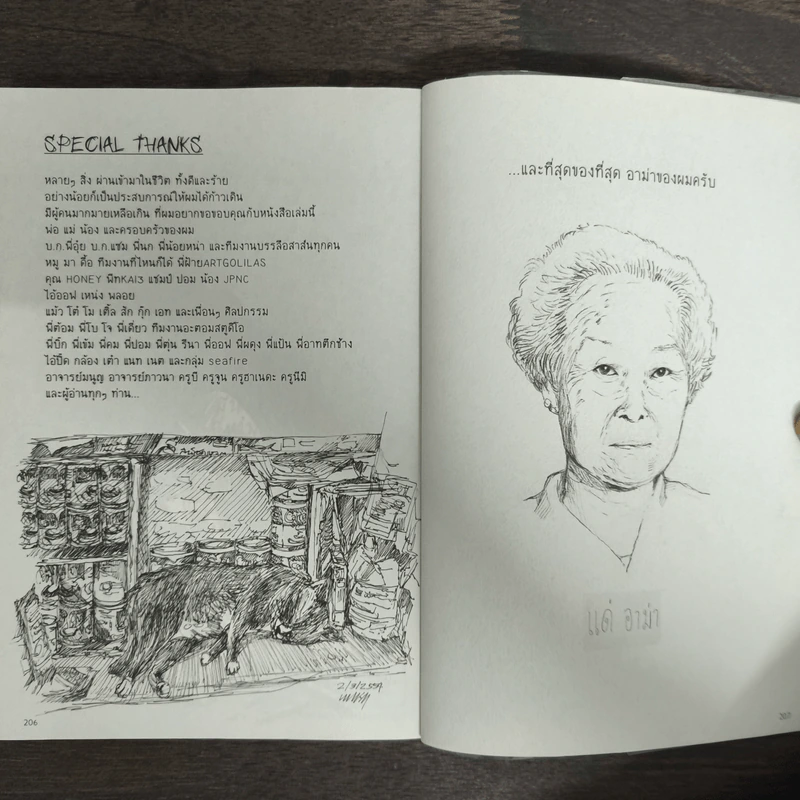 SPECIAL THANKS
หลายๆ สิ่ง ผ่านเข้ามาในชีวิต ทั้งดีและร้าย
อย่างน้อยก็เป็นประสบการณ์ให้ผมได้ก้าวเดิน
มีผู้คนมากมายเหลือเกิน ที่ผมอยากขอขอบคุณกับหนังสือเล่มนี้
พ่อ แม่ น้อง และครอบครัวของผม
บ.ก.พี่อุ๋ย บ.ก.แซม พี่นก พี่น้อยหน่า และทีมงานบรรลือสาส์นทุกคน
หมู มา ตื้อ ทีมงานที่ไหนก็ได้ พี่ฝ้ายARTGOLILAS
คุณ HONEY พีทKAI3 แชมป์ ปอม น้อง JPNC
ไอ้ออฟ เหน่ง พลอย
แม้ว โต๋ โม เติ้ล สัก กุ๊ก เอท และเพื่อนๆ ศิลปกรรม
พี่ต้อม พี่โบ โจ พี่เดี่ยว ทีมงานอะตอมสตูดิโอ
พี่บิ๊ก พี่เข้ม พี่คม พี่ปอม พี่ตุ่น รีนา พี่ออฟ พี่ผดุง พี่แป้น พี่อาทตึกช้าง
ไอ้ปิ๊ด กล้อง เต๋า แนท เนต และกลุ่ม seafire
อาจารย์มนูญ อาจารย์ภาวนา ครูบี ครูจูน ครูฮาเนดะ ครูนีมิ
และผู้อ่านทุกๆ ท่าน...
2/9/2559
206
...และที่สุดของที่สุด อาม่าของผมครับ
แด่ อาม่า
207